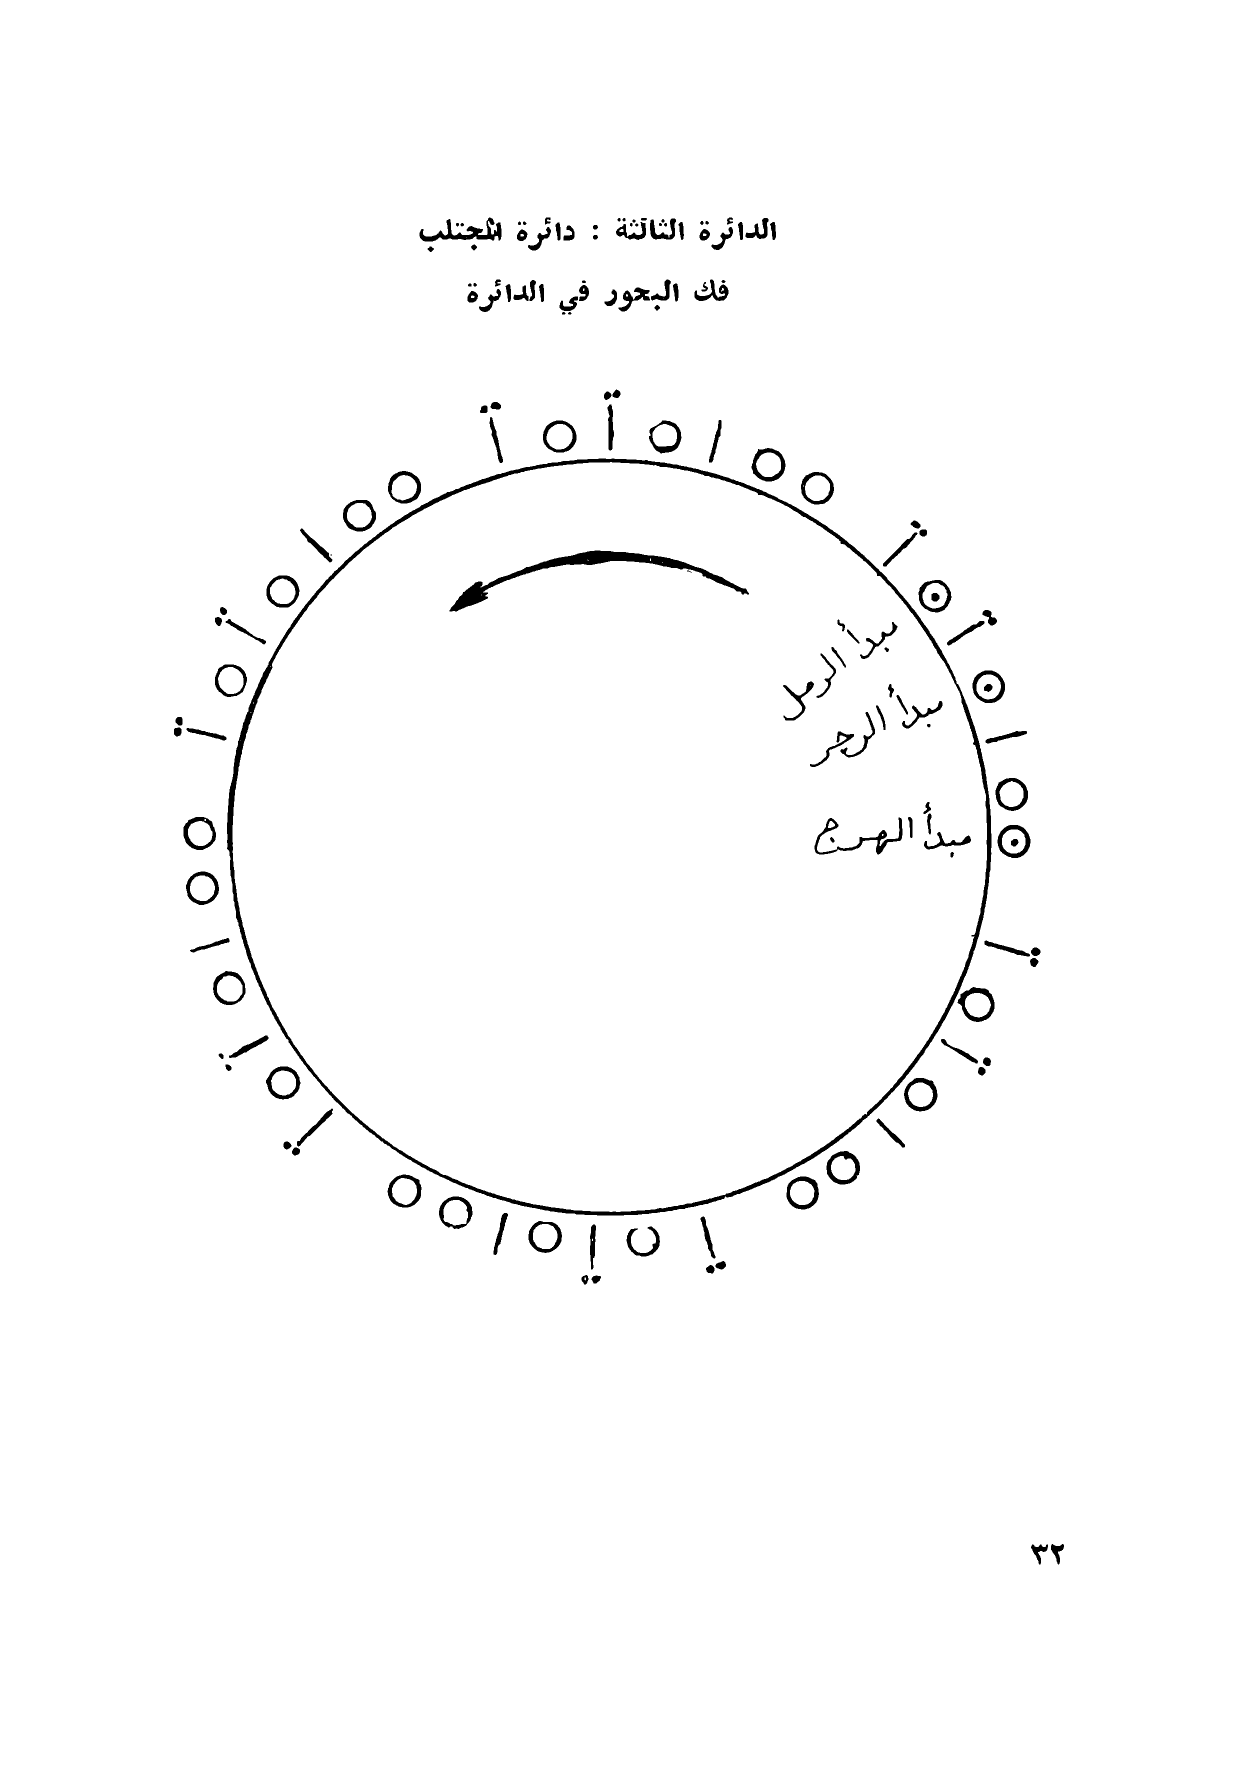 الدائرة الثالثة : دائرة المجتلب
فك البحور في الدائرة
مبدأ الرمل
مبدأ الرجز
مبدأ الهزج
٣٢